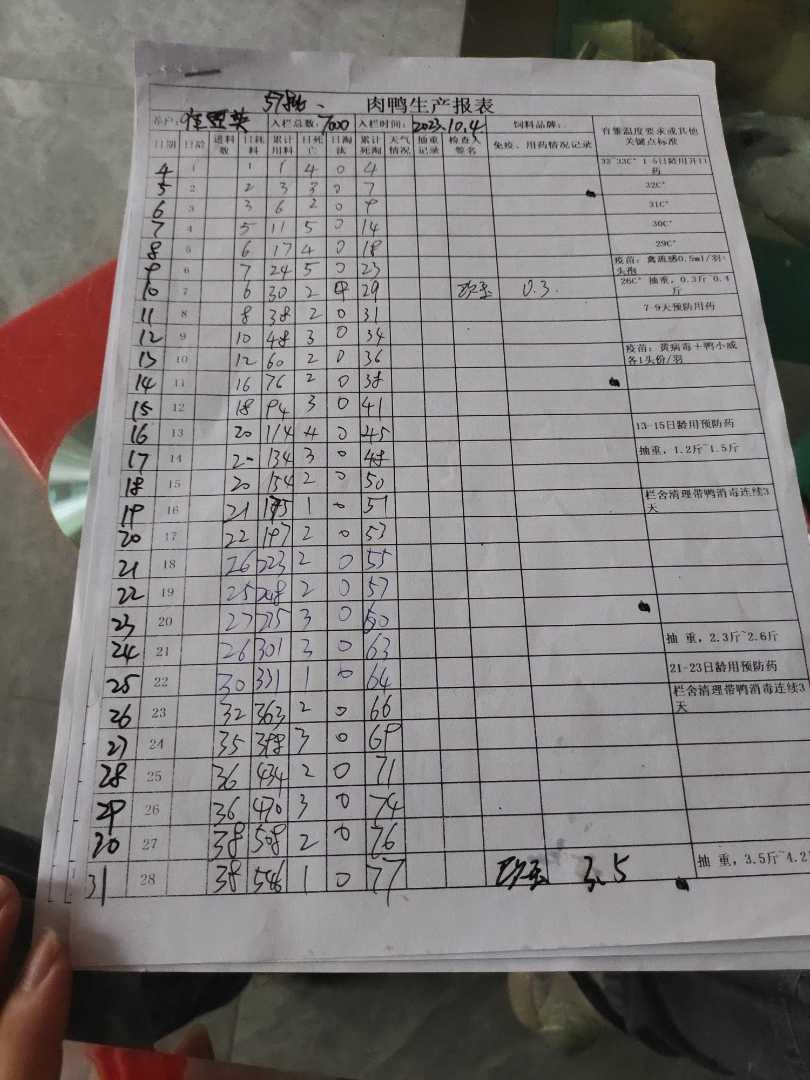 578批.
肉鸭生产报表
养户: 入栏总数: 7000 入栏时间: 2023.10.4 饲料品牌: 育雏温度要求或其他关键点标准
日期 日龄 进料数 日耗料 累计用料 日死亡 日淘汰 累计死淘 天气情况 抽重记录 检查人签名 免疫、用药情况记录
4 1 1 1 4 0 4 32~33C° 1-5日龄用开口药
5 2 2 3 3 0 7 32C°
6 3 3 6 2 0 9 31C°
7 4 5 11 5 0 14 30C°
8 5 6 17 4 0 18 29C°
9 6 7 24 5 0 23 疫苗：禽流感0.5ml/羽+头孢
10 7 6 30 2 29 0.3. 26C° 抽重，0.3斤~0.4斤
11 8 8 38 2 0 31 7-9天预防用药
12 9 10 48 3 0 34
13 10 12 60 2 0 36 疫苗：黄病毒+鸭小减各1头份/羽
14 11 16 76 2 0 38
15 12 18 94 3 0 41
16 13 20 114 4 0 45 13-15日龄用预防药
17 14 20 134 3 0 48 抽重，1.2斤~1.5斤
18 15 20 154 2 0 50
19 16 21 175 1 0 51 栏舍清理带鸭消毒连续3天
20 17 22 197 2 0 53
21 18 26 223 2 0 55
22 19 25 248 2 0 57
23 20 27 275 3 0 60
24 21 26 301 3 0 63 抽重，2.3斤~2.6斤
25 22 30 331 1 0 64 21-23日龄用预防药
26 23 32 363 2 0 66 栏舍清理带鸭消毒连续3天
27 24 35 398 3 0 69
28 25 36 434 2 0 71
29 26 36 470 3 0 74
30 27 38 508 2 0 76
31 28 38 546 1 0 77 3.5 抽重，3.5斤~4.2